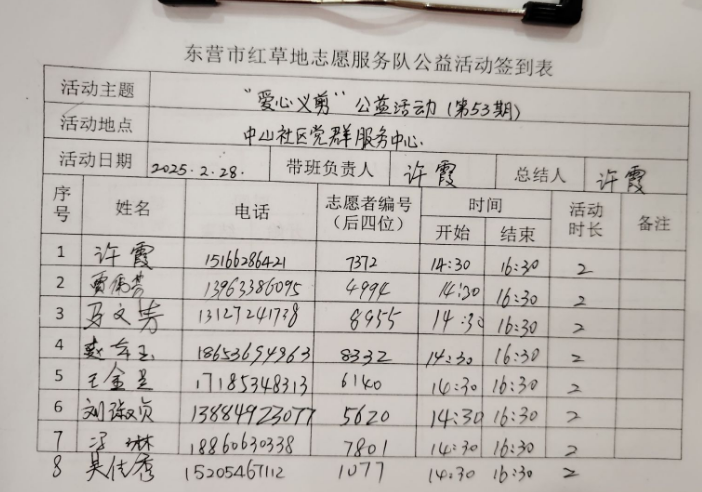 东营市红草地志愿服务队公益活动签到表
活动主题 “爱心义剪”公益活动(第53期)
活动地点 中山社区党群服务中心.
活动日期 2025.2.28. 带班负责人 许霞 总结人 许霞
序号 姓名 电话 志愿者编号(后四位) 时间 活动时长 备注
开始 结束
1 许霞 15166286421 7372 14:30 16:30 2
2 13963386095 4994 14:30 16:30 2
3 马文芳 13127241738 8955 14:30 16:30 2
4 18653694963 8332 14:30 16:30 2
5 王金兰 17185348313 6140 14:30 16:30 2
6 刘淑贞 13884923077 5620 14:30 16:30 2
7 冯琳 18860630338 7801 14:30 16:30 2
8 吴佳秀 15205467112 1077 14:30 16:30 2